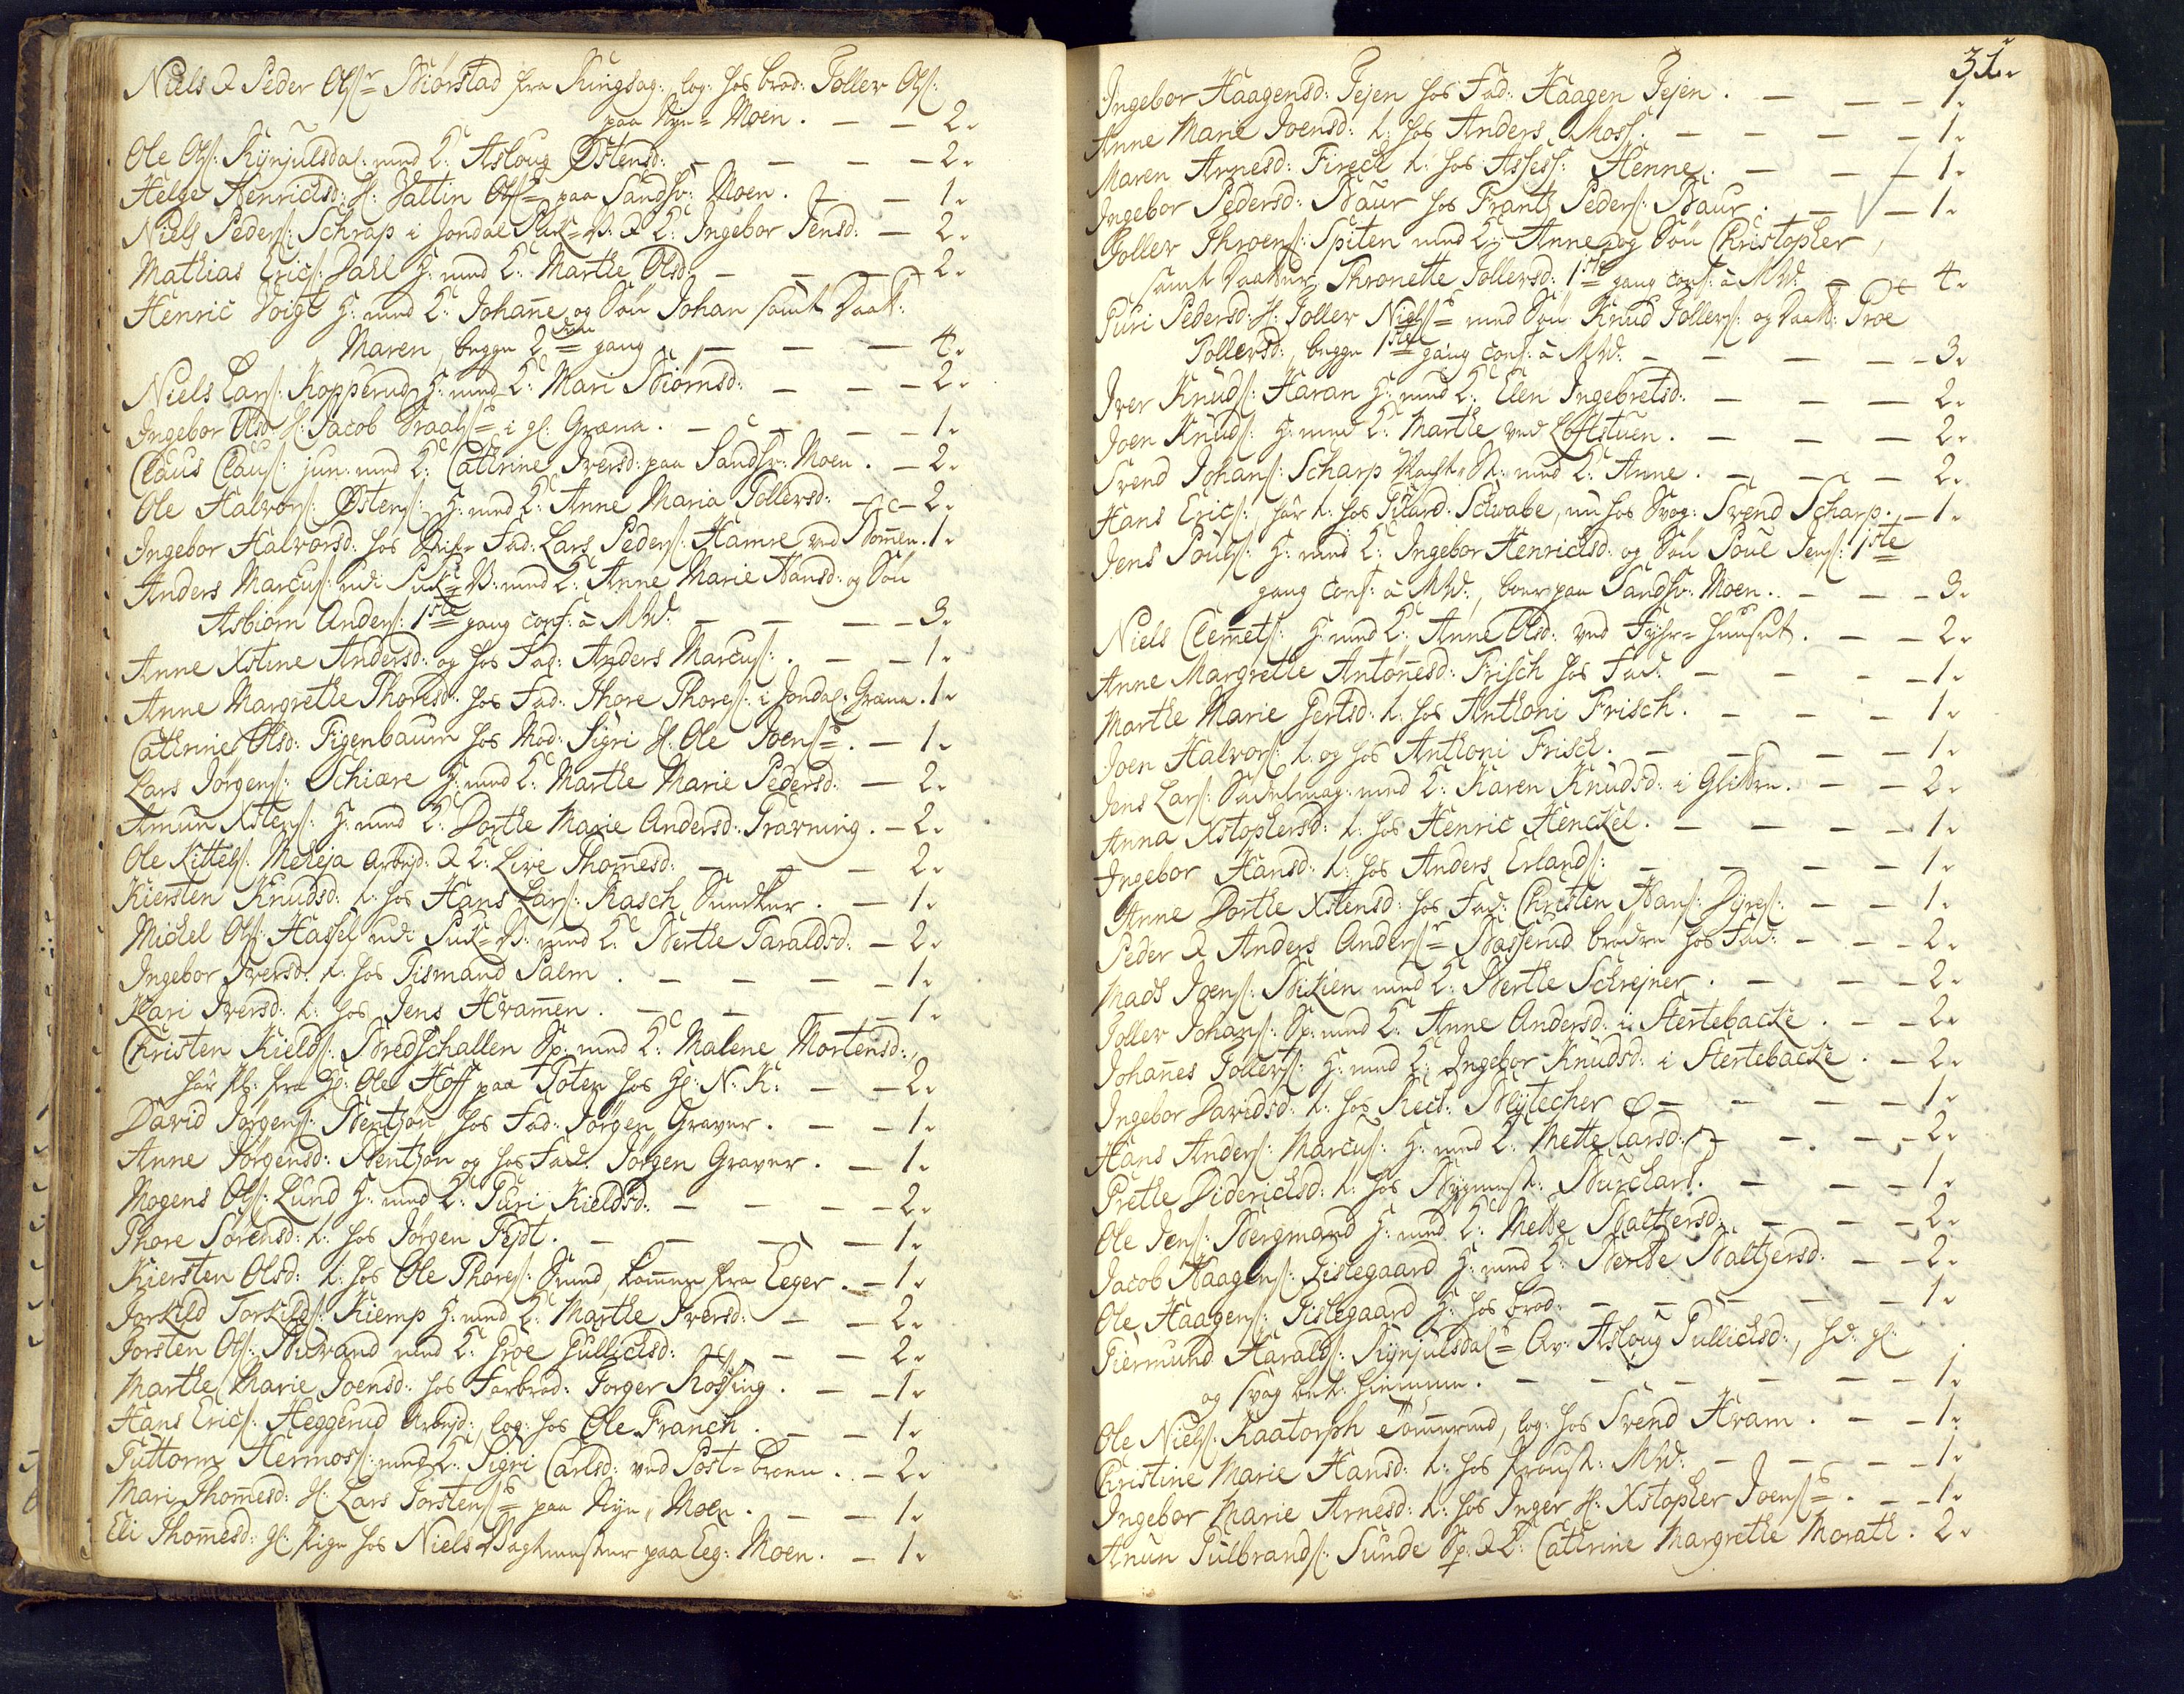 Niels & Peder Ols: Biørstad fra Ringsag: log: hos brod: Toller Ols:
paa Nye-Moen. — — 2.
Ole Ols: Rynjulsdal: med K: Asloug Østensd: — — — 2.
Helge Henrichsd: H: Hallin Ols: paa Sandsv: Moen. — — 1.
Niels Peders: Schrap i Jondal & K: Ingebor Jensd: — 2.
Mathias Erics: Dahl G: med K: Marthe Olsd: — — — 2.
Henric Voigt G: med K: Johane og Søn Johan samt Daat:
Maren, begge 2den gang — — — 4.
Niels Lars: Kopperud G: med K: Mari Biørnsd: — — — 2.
Ingebor Olsd: H: Jacob i gl: Græna. — — — 1.
Claus Claus: jun: med K: Cathrine Iversd: paa Sandsv: Moen. — 2.
Ole Halvors: Østens: G: med K: Anne Maria Tollersd: — 2.
Ingebor Halvorsd: hos Stif-Fad: Lars Peders: Hamre ved Bomen. 1.
Anders Marcus: ved med K: Anne Marie Hansd: og Søn
Asbiørn Anders: 1ste gang conf: à MW: — — — 3.
Anne Xstine Andersd: og hos Fad: Anders Marcus: — — 1.
Anne Margrethe Thoresd: hos Fad: Thore Thores: i Jondal: Græna. 1.
Cathrine Olsd: Figenbaum hos Mod: Sigri H: Ole Joens: — 1.
Lars Jørgens: Schiære G: med K: Marthe Marie Pedersd: — 2.
Amun Xstens: G: med K: Dorthe Marie Andersd: Gravning. — 2.
Ole Kittels: Meheja arbejd: & K: Live Thomesd: — — — 2.
Kiersten Knudsd: t: hos Hans Lars: Rasch Snedker. — 1.
Michel Ols: Hassel med K: Berthe Taraldsd: — 2.
Ingebor Iversd: t: hos Tismand Palm. — — — 1.
Kari Iversd: t: hos Jens Hvamen. — — — 1.
Christen Kields: Bredschallen Sp: med K: Malene Mortensd:,
hår fra Hr: Ole Hoff paa Toten hos Hr: N: K: — — 2.
David Jørgens: Bentzon hos Fad: Jørgen Graver. — — 1.
Anne Jørgensd: Bentzon og hos Fad: Jørgen Graver. — 1.
Mogens Ols: Lund G: med K: Guri Kieldsd: — — — 2.
Thore Sørensd: t: hos Jørgen Feydt. — — — 1.
Kiersten Olsd: t: hos Ole Thores: Smed, kommen fra Eeger. — 1.
Torkild Torkilds: Kiemp G: med K: Marthe Iversd: — — 2.
Torsten Ols: med K: Groe Gullichsd: — — 2.
Marthe Marie Joensd: hos Farbrod: Torger Kossing. — — 1.
Hans Erics: Heggerud arbejd:, log: hos Ole Franch. — — 1.
Guttorm Hermos: med K: Sigri Carlsd: ved Post-broen. — 2.
Mari Thomesd: H: Lars Torstens: paa Nye-Moen. — — 1.
Eli Thomesd: gl: Pige hos Niels Vagtmester paa Eeg: Moen. — 1.
31.
Ingebor Haagensd: Tejen hos Fad: Haagen Tejen. — — — 1.
Anne Marie Joensd: t: hos Anders Moss: — — — 1.
Maren Arnesd: Fireck t: hos Assess: Henne. — — 1.
Ingebor Pedersd: Baur hos Frantz Peders: Baur. — — 1.
Toller Throens: Spiten med K: Anne, og Søn Christopher,
samt Daatter Thronette Tollersd: 1ste gang conf: à MW: — — 4.
Guri Pedersd: H: Toller Niels: med Søn Knud Tollers: og Daatt: Groe
Tollersd:, begge 1ste gang conf: à MW: — — — 3.
Iver Knuds: Haran G: med K: Elen Ingebretsd: — — — 2.
Joen Knuds: G: med K: Marthe ved Loftstuen. — — — 2.
Svend Johans: Scharp med K: Anne. — — — 2.
Hans Erics:, hår t: hos Schwabe, nu hos Svog: Svend Scharp. — 1.
Jens Pouls: G: med K: Ingebor Henrichsd: og Søn Poul Jens: 1ste
gang conf: à MW:, boer paa Sandsv: Moen. — — — 3.
Niels Clemets: G: med K: Anne Olsd: ved Fyhr-huuset. — — 2.
Anne Margrethe Antonesd: Frisch hos Fad: — — — 1.
Marthe Marie Gertsd: t: hos Anthoni Frisch. — — — 1.
Joen Halvors: t: og hos Anthoni Frisch. — — — 1.
Jens Lars: Sadelmag: med K: Karen Knudsd: i Glitren. — — 2.
Anna Xstophersd: t: hos Henric Henckel. — — — 1.
Ingebor Hansd: t: hos Anders Erlands: — — — 1.
Anne Dorthe Xstensd: hos Fad: Christen Hans: Dyres: — — 1.
Peder & Anders Anders: Basserud brødre hos Fad: — — 2.
Mads Joens: Bikien med K: Berthe Schrejner. — — — 2.
Toller Johans: Sp: med K: Anne Andersd: i Stertebacke. — — 2.
Johanes Tollers: G: med K: Ingebor Knudsd: i Stertebacke. — 2.
Ingebor Davidsd: t: hos Rect: Blytecher — — — 1.
Hans Anders: Marcus: G: med K: Mette Larsd: — — — 2.
Grethe Diderichsd: t: hos Burchart. — — — 1.
Ole Jens: Bergmand G: med K: Mette Baltzersd: — — — 2.
Jacob Haagens: Tislegaard G: med K: Berthe Baltzersd: — — 2.
Ole Haagens: Tislegaard G: hos brod: — — — — 1.
Giermund Haralds: Rynjulsdal: Qv: Asloug Gullichsd:, gl:
og svag hiemme. — — — — — 1.
Ole Niels: Kaatorph Tømermd, log: hos Svend Hvam. — — 1.
Christine Marie Hansd: t: hos Proust: MW: — — — 1.
Ingebor Marie Arnesd: t: hos Inger H: Xstopher Joens: — — 1.
Anun Gulbrands: Sunde Sp: & K: Cathrine Margrethe Morath. 2.